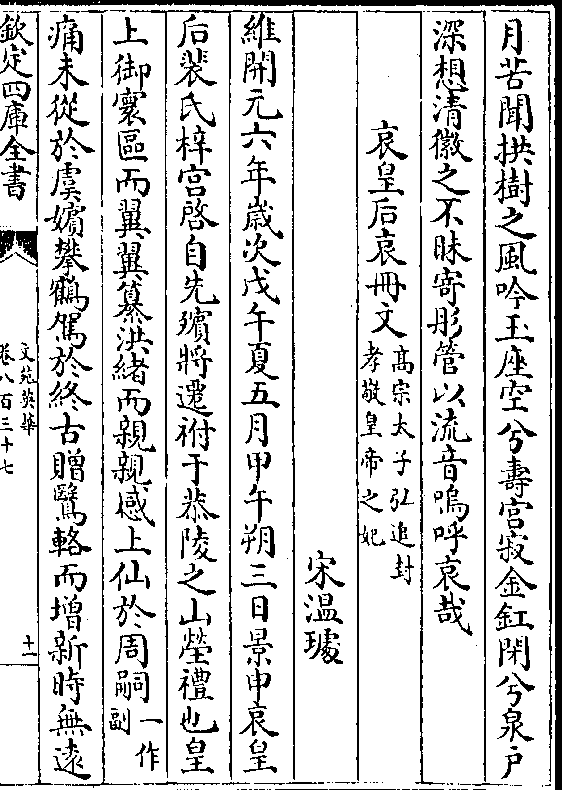 月苦聞拱樹之風吟玉座空兮壽宫寂金釭閉兮泉戸
深想清徽之不昧寄彤管以流音嗚呼哀哉
哀皇后哀冊文
髙宗太子弘追封
孝敬皇帝之妃
宋温璩
維開元六年歳次戊午夏五月甲午朔三日景申哀皇
后裴氏梓宫啓自先殯將遷祔于恭陵之山塋禮也皇
上御寰區而翼翼纂洪緒而親親感上仙於周嗣
一作
副
痛未從於虞嬪攀鶴駕於終古贈鷖輅而增新時無逺
欽定四庫全書
文苑英華
卷八百三十七
十一